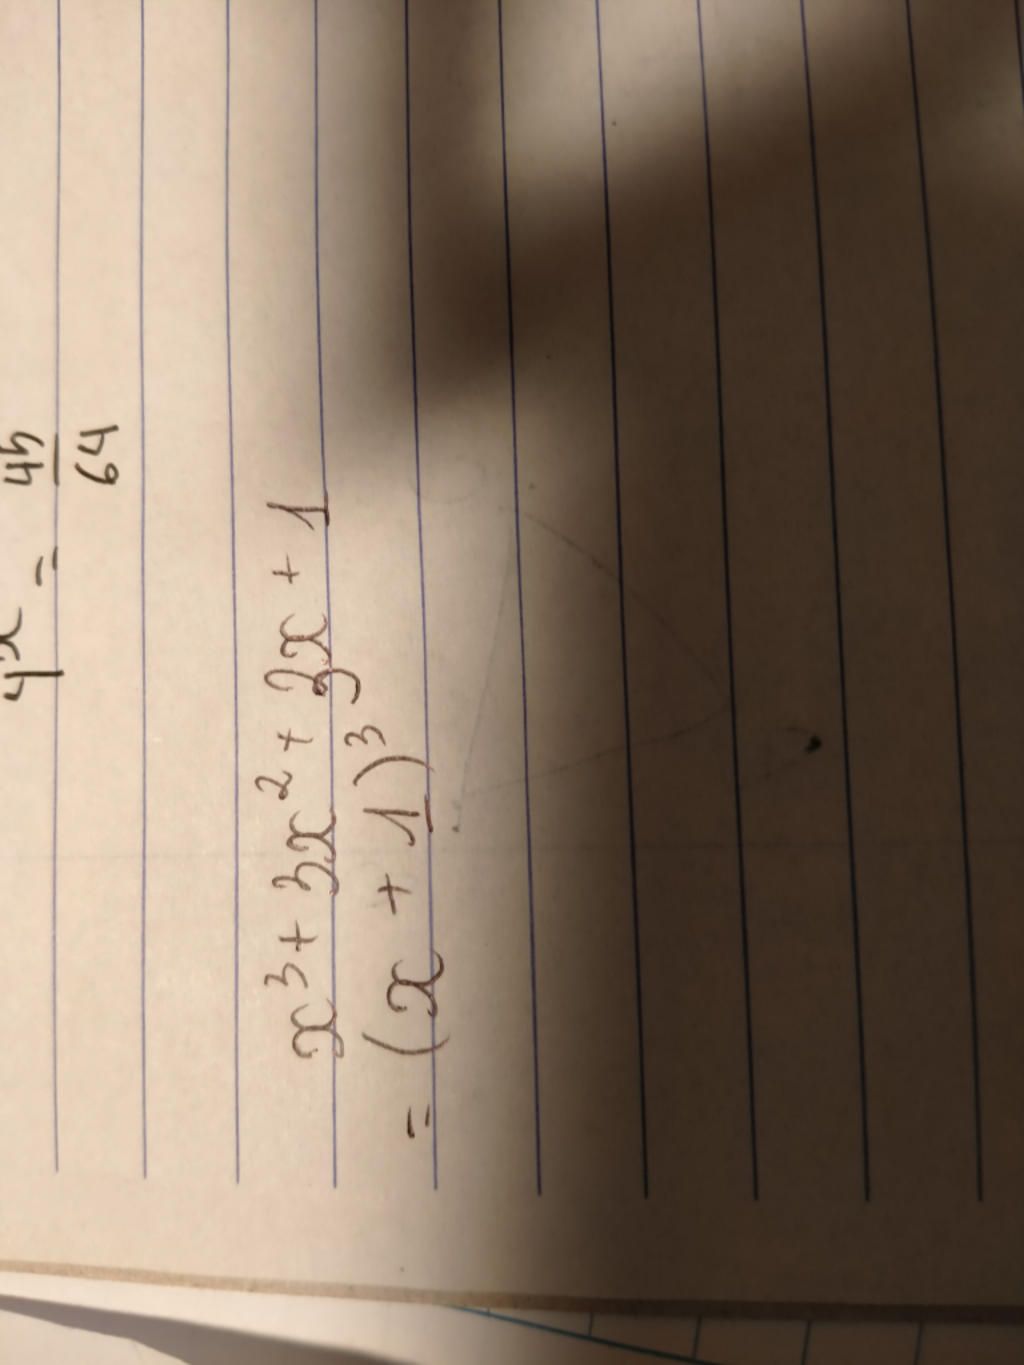 4x = 45/64
x³ + 3x² + 3x + 1
= (x + 1)³